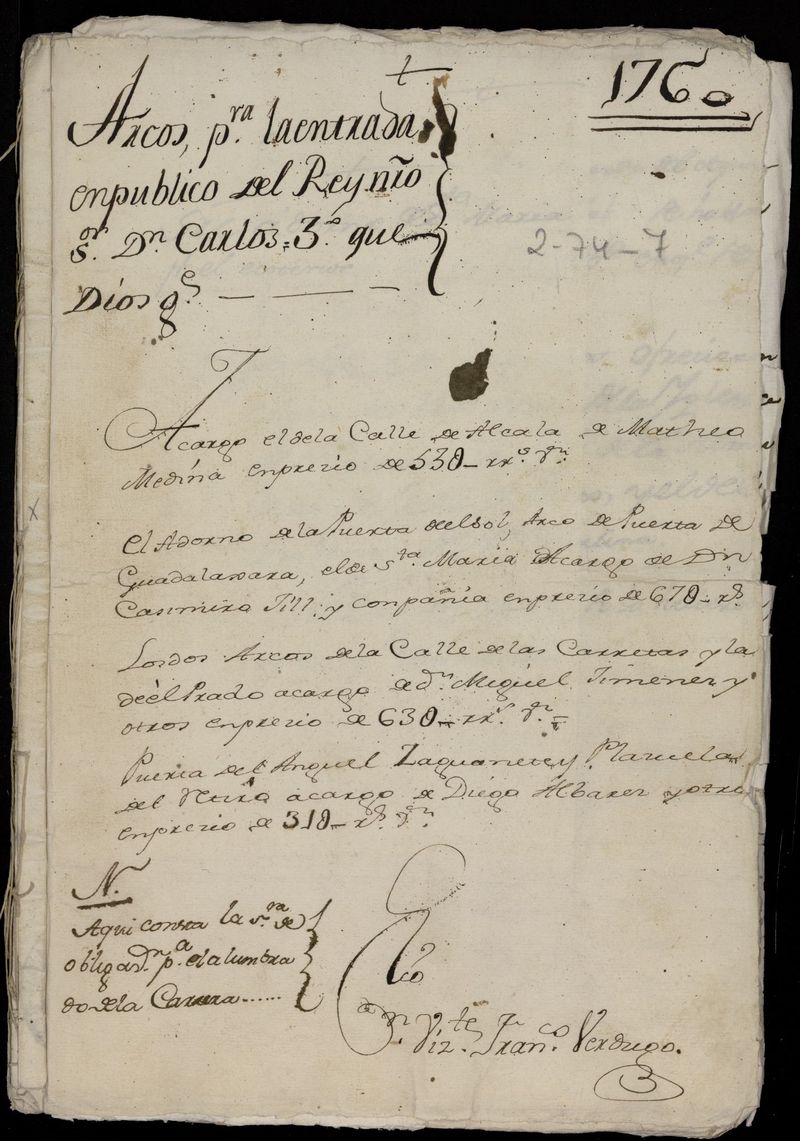 +
1760
Arcos, pra. la entrada
en publico del Rey nro
Sor. Dn Carlos=3.º que
Dios ge
2-74-7
Acargo el de la Calle de Alcala de Matheo
Medina en precio de 530_ rrs. vn.
El Adorno de la Puerta del Sol, Arco de Puerta de
Guadalaxara, el de Sta. Maria Acargo de Dn
Casimiro Till: y conpañia en precio de 670_ rs.
Los dos Arcos de la Calle de las Carretas y la
de el Prado acargo de dn. Miguel Jimenez y
otros en precio de 630_ rrs. vn.
Puerta del Anguel Zaguanete y Plazuela
del Retiro acargo de Diego Albarez y otro
en precio de 310_ rs. vn.
N.
Aqui consta la sra. de
obligasn. pa. el alumbra
do de la Carrera......
SSno
Dn. Vizte. Franco. Verdugo.